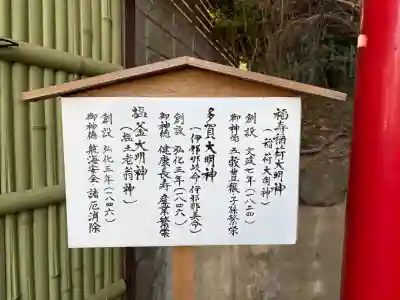 福寿稲荷大明神
（稲荷大明神）
創設 文政七年（一八二四）
御神徳 五穀豊穣 子孫繁栄
多賀大明神
（伊邪那岐命 伊邪那美命）
創設 弘化三年（一八四六）
御神徳 健康長寿 産業繁栄
塩釜大明神
（塩土老翁神）
創設 弘化三年（一八四六）
御神徳 航海安全 諸厄消除